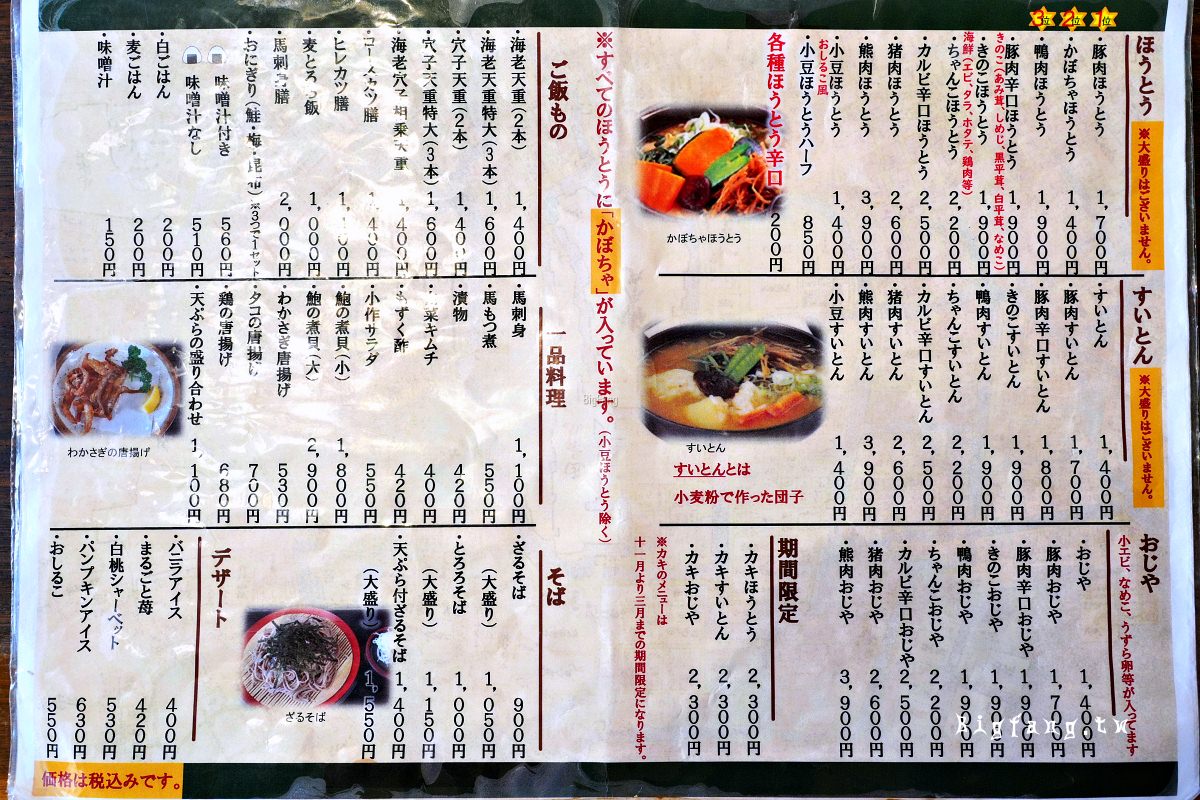 ほうとう
※大盛りはございません。
3位 2位 1位
・豚肉ほうとう 1,700円
・かぼちゃほうとう 1,400円
・鴨肉ほうとう 1,900円
・豚肉辛口ほうとう 1,900円
きのこ(あみ茸、しめじ、黒平茸、白平茸、なめこ)
・きのこほうとう 1,900円
海鮮(エビ、タラ、ホタテ、鶏肉等)
・ちゃんこほうとう 2,200円
・カルビ辛口ほうとう 2,500円
・猪肉ほうとう 2,600円
・熊肉ほうとう 3,900円
・小豆ほうとう 1,400円
おしるこ風
・小豆ほうとうハーフ 850円
各種ほうとう辛口 200円
かぼちゃほうとう
すいとん
※大盛りはございません。
・すいとん 1,400円
・豚肉すいとん 1,700円
・豚肉辛口すいとん 1,800円
・きのこすいとん 1,900円
・鴨肉すいとん 1,900円
・ちゃんこすいとん 2,200円
・カルビ辛口すいとん 2,500円
・猪肉すいとん 2,600円
・熊肉すいとん 3,900円
・小豆すいとん 1,400円
すいとん
すいとんとは
小麦粉で作った団子
おじや
小エビ、なめこ、うずら卵等が入ってます
・おじや 1,400円
・豚肉おじや 1,700円
・豚肉辛口おじや 1,900円
・きのこおじや 1,900円
・鴨肉おじや 1,900円
・ちゃんこおじや 2,200円
・カルビ辛口おじや 2,500円
・猪肉おじや 2,600円
・熊肉おじや 3,900円
期間限定
・カキほうとう 2,300円
・カキすいとん 2,300円
・カキおじや 2,300円
※カキのメニューは
十一月より三月までの期間限定になります。
※すべてのほうとうに「かぼちゃ」が入っています。(小豆ほうとう除く)
ご飯もの
・海老天重(2本) 1,400円
・海老天重特大(3本) 1,600円
・穴子天重(2本) 1,400円
・穴子天重特大(3本) 1,600円
・海老穴子相乗天重 1,400円
・ロースカツ膳 1,400円
・ヒレカツ膳 1,100円
・麦とろご飯 1,000円
・馬刺し膳 2,000円
・おにぎり(鮭・梅・昆布)※3つで一セット
味噌汁付き 560円
味噌汁なし 510円
・白ごはん 200円
・麦ごはん 200円
・味噌汁 150円
一品料理
・馬刺身 1,100円
・馬もつ煮 550円
・漬物 420円
・白菜キムチ 400円
・もずく酢 420円
・小作サラダ 550円
・鮑の煮貝(小) 1,800円
・鮑の煮貝(大) 2,900円
・わかさぎ唐揚げ 530円
・タコの唐揚げ 700円
・鶏の唐揚げ 680円
・天ぷらの盛り合わせ 1,100円
わかさぎの唐揚げ
そば
・ざるそば 900円
(大盛り) 1,050円
・とろろそば 1,000円
(大盛り) 1,150円
・天ぷら付ざるそば 1,400円
(大盛り) 1,550円
ざるそば
デザート
・バニラアイス 400円
・まるごと苺 420円
・白桃シャーベット 530円
・パンプキンアイス 630円
・おしるこ 550円
価格は税込みです。
Bigfang.tw